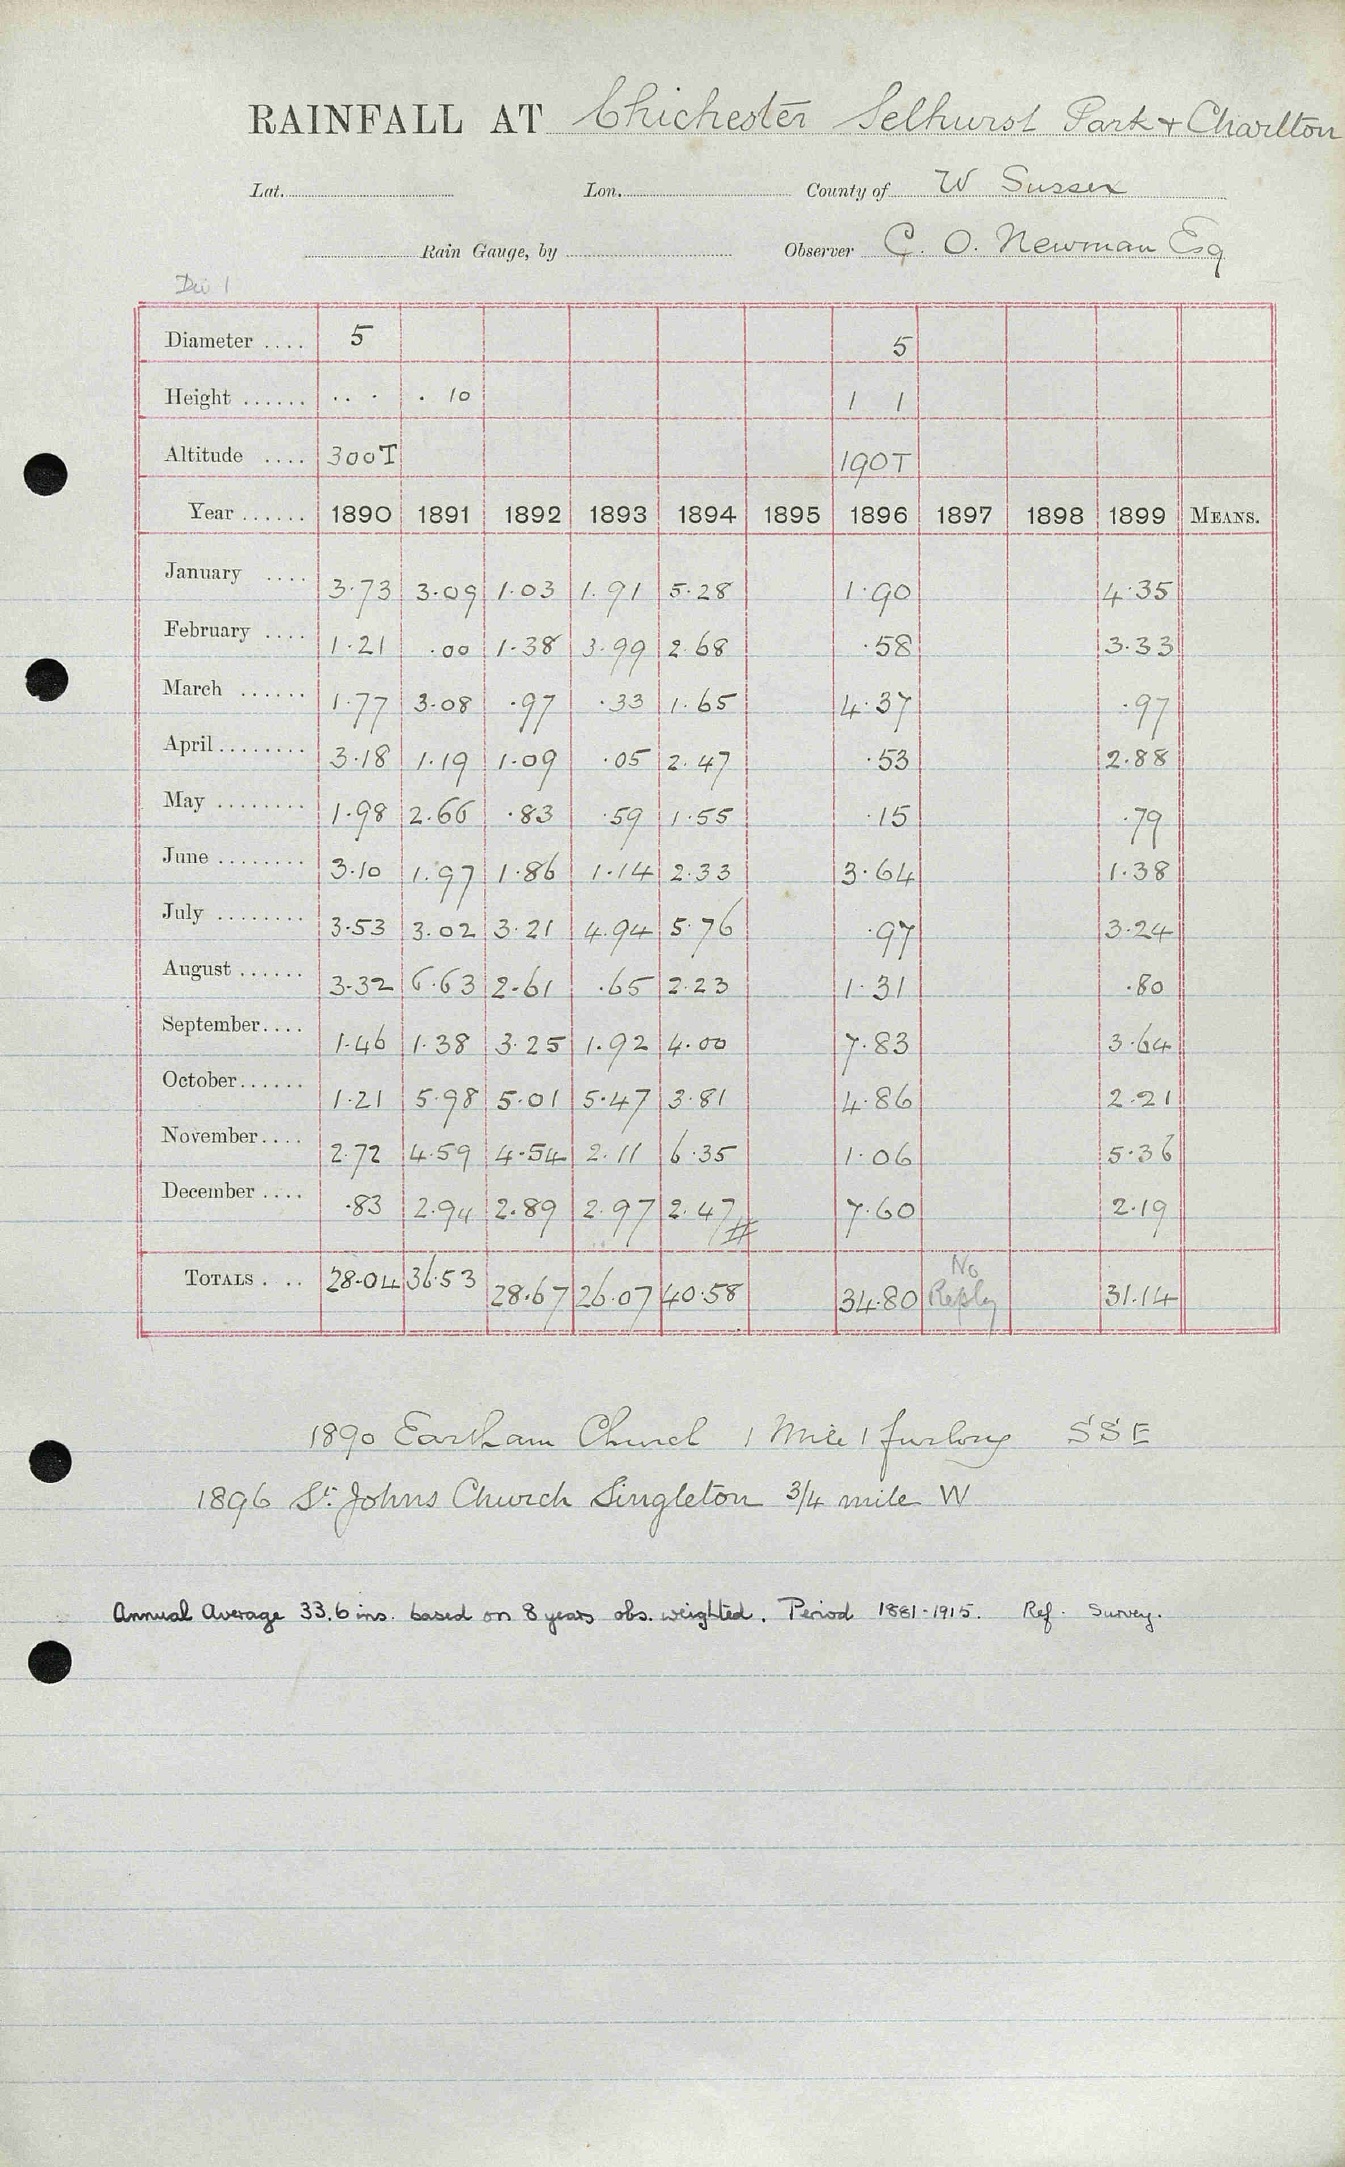 RAINFALL AT Chichester Selhurst Park + Charlton
Lat. Lon. County of W Sussex
Rain Gauge, by Observer C. O. Newman Esq
Div 1
Diameter .... 5 5
Height ...... .. . . 10 1 1
Altitude .... 300T 190T
Year ...... 1890 1891 1892 1893 1894 1895 1896 1897 1898 1899 MEANS.
January .... 3.73 3.09 1.03 1.91 5.28 1.90 4.35
February .... 1.21 .00 1.38 3.99 2.68 .58 3.33
March ...... 1.77 3.08 .97 .33 1.65 4.37 .97
April ........ 3.18 1.19 1.09 .05 2.47 .53 2.88
May ........ 1.98 2.66 .83 .59 1.55 .15 .79
June ........ 3.10 1.97 1.86 1.14 2.33 3.64 1.38
July ........ 3.53 3.02 3.21 4.94 5.76 .97 3.24
August ...... 3.32 6.63 2.61 .65 2.23 1.31 .80
September.... 1.46 1.38 3.25 1.92 4.00 7.83 3.64
October...... 1.21 5.98 5.01 5.47 3.81 4.86 2.21
November.... 2.72 4.59 4.54 2.11 6.35 1.06 5.36
December .... .83 2.94 2.89 2.97 2.47 # 7.60 2.19
TOTALS . .. 28.04 36.53 28.67 26.07 40.58 34.80 No Reply 31.14
1890 Eartham Church 1 Mile 1 furlong SSE
1896 St. Johns Church Singleton 3/4 mile W
Annual Average 33.6 ins. based on 8 years obs. weighted. Period 1881-1915. Ref. Survey.